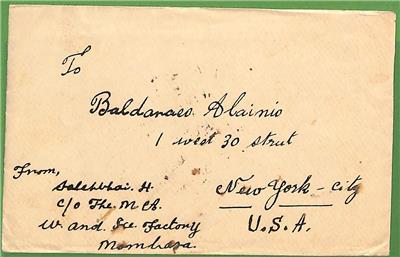 To
Baldanaeo Alainio
1 west 30 strut
From,
Salehbhai. H.
C/o The M Co.
W. and. Ice. Factory
Mombasa.
New York - City
U.S.A.